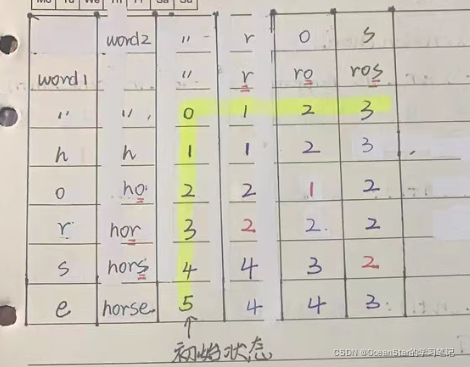 Mo Tu We Th Fr Sa Su
word2 " r o s
word1 " r ro ros
" " 0 1 2 3
h h 1 1 2 3
o ho 2 2 1 2
r hor 3 2 2 2
s hors 4 4 3 2
e horse 5 4 4 3
初始状态
CSDN @OceanStar的学习笔记